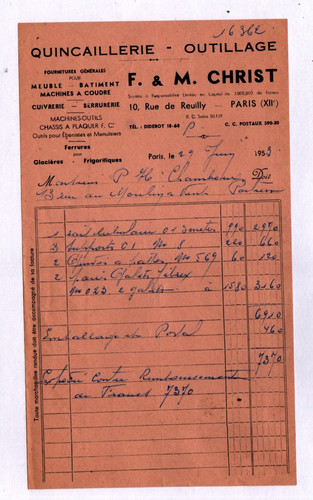 16362
QUINCAILLERIE - OUTILLAGE
FOURNITURES GÉNÉRALES
POUR
MEUBLE - BATIMENT
MACHINES A COUDRE
CUIVRERIE - SERRURERIE
MACHINES-OUTILS
CHASSIS A PLAQUER F. C.
Outils pour Ébénistes et Menuisiers
Ferrures
pour
Glacières - Frigorifiques
F. & M. CHRIST
Société à Responsabilité Limitée au Capital de 1.000.000 de francs
10, Rue de Reuilly - PARIS (XIIe)
R. C. Seine
TÉL. : DIDEROT 18-64
C. C. POSTAUX 390-30
Paris, le 29 Juin 1953
Monsieur P Doit
13 rue du Moulin à Vent
1 rail 0 1 3 metres 990 2970
3 supports 0 1 N° 8 220 660
2 N° 569 60 120
2
N° 023 2 galets à 1580 3160
6910
Emballage et Postal 460
7370
Contre Remboursement
de Francs 7370
Toute marchandise rendue doit être accompagnée de sa facture